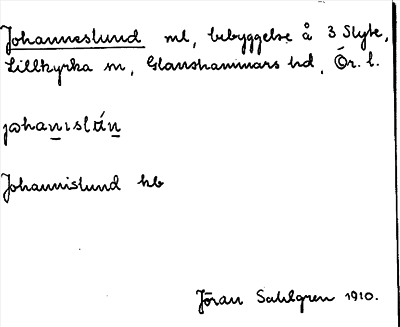 Johanneslund ml, bebyggelse å 3 Slyte,
Lillkyrka sn, Glanshammars hd, Ör. l.
johanıslún
Johannislund hb
Jöran Sahlgren 1910.